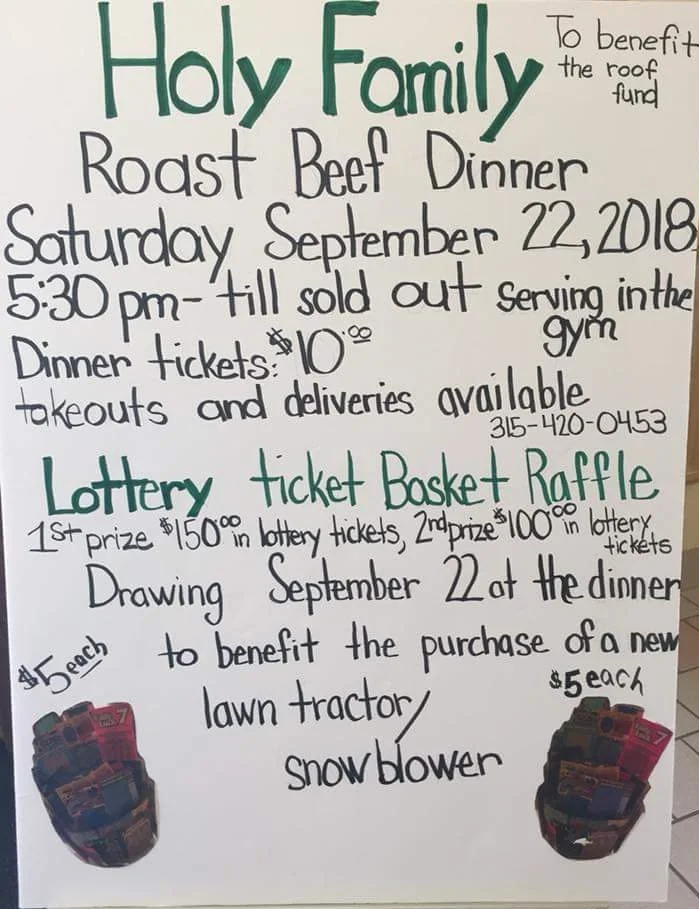 Holy Family
To benefit
the roof
fund
Roast Beef Dinner
Saturday September 22, 2018
5:30 pm- till sold out serving in the
gym
Dinner tickets: $10.00
takeouts and deliveries available
315-420-0453
Lottery ticket Basket Raffle
1st prize $150.00 in lottery tickets, 2nd prize $100.00 in lottery
tickets
Drawing September 22 at the dinner
$5 each
to benefit the purchase of a new
$5 each
lawn tractor/
snow blower